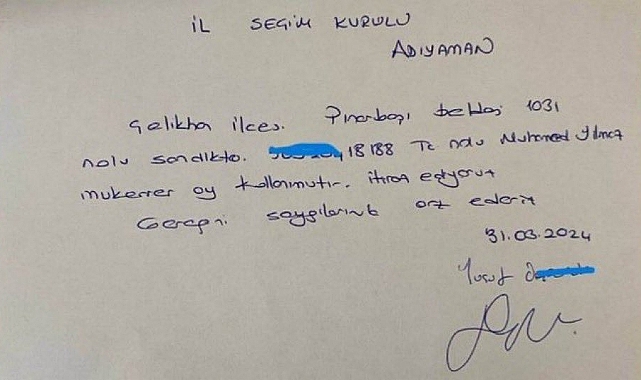 İL SEÇİM KURULU
ADIYAMAN
Çelikhan ilçesi. Pınarbaşı beldesi 1031
nolu sandıkta. 18188 Tc nolu Muhamed Yılmaz
mukerrer oy kullanmıştır. itiraz ediyoruz
Gereğini saygılarımla arz ederiz
31.03.2024
Yusuf